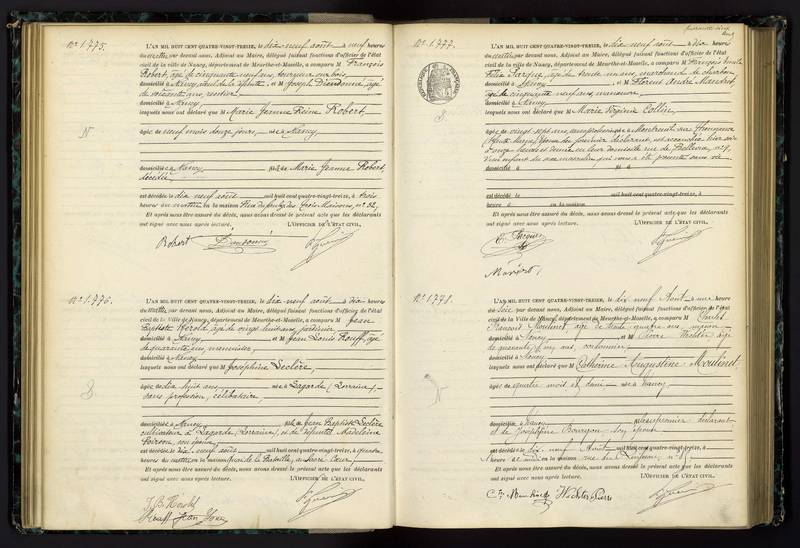 N° 1775.
L'AN MIL HUIT CENT QUATRE-VINGT-TREIZE, le dix-neuf août à neuf heures
du matin, par devant nous, Adjoint au Maire, délégué faisant fonctions d'officier de l'état
civil de la ville de Nancy, département de Meurthe-et-Moselle, a comparu M François
Robert, âgé de cinquante neuf ans, tourneur sur bois,
domicilié à Nancy, aïeul de la défunte, et M Joseph Dieudonné, âgé
de soixante ans, rentier,
domicilié à Nancy,
lesquels nous ont déclaré que Marie Jeanne Reine Robert,
âgée de neuf mois douze jours, née à Nancy,
domiciliée à Nancy, fille de Marie Jeanne Robert,
décédée
est décédée le dix neuf août mil huit cent quatre-vingt-treize, à trois
heures du matin en la maison Rue du faubg des Trois Maisons, n° 92,
Et après nous être assuré du décès, nous avons dressé le présent acte que les déclarants
ont signé avec nous après lecture. L'OFFICIER DE L'ÉTAT CIVIL,
Robert Dieudonné
N
N° 1776.
L'AN MIL HUIT CENT QUATRE-VINGT-TREIZE, le dix-neuf août à dix heures
du matin, par devant nous, Adjoint au Maire, délégué faisant fonctions d'officier de l'état
civil de la Ville de Nancy, département de Meurthe-et-Moselle, a comparu M Jean
Baptiste Herold, âgé de vingt huit ans, jardinier
domicilié à Nancy, et M Jean Louis Rouff, âgé
de quarante ans, menuisier,
domicilié à Nancy
lesquels nous ont déclaré que Joséphine Leclère,
âgée de dix huit ans née à Lagarde (Lorraine),
sans profession, célibataire,
domiciliée à Nancy fille de Jean Baptiste Leclère
cultivateur à Lagarde (Lorraine), et de défunte Madeleine
Poirson, son épouse,
est décédée le dix-neuf août mil huit cent quatre-vingt-treize, à
heures du matin en la maison rue de la , au Sacré Cœur,
Et après nous être assuré du décès, nous avons dressé le présent acte que les déclarants
ont signé avec nous après lecture. L'OFFICIER DE L'ÉTAT CIVIL,
J. B. Herold
Rouff Jean Louis
N° 1777.
L'AN MIL HUIT CENT QUATRE-VINGT-TREIZE, le dix-neuf août à dix heures
du matin, par devant nous, Adjoint au Maire, délégué faisant fonctions d'officier de l'état
civil de la ville de Nancy, département de Meurthe-et-Moselle, a comparu M François Emile
Félix , âgé de trente un ans, marchand de charbon,
domicilié à Nancy, et M Florent André
âgé de cinquante neuf ans, manœuvre
domicilié à Nancy
lesquels nous ont déclaré que Marie Virginie Collin,
âgée de vingt sept ans, née à Montreuil sur Thonnance
(Haute Marne), épouse du premier déclarant, est accouchée hier soir
à onze heures et demie en leur domicile rue de Phalleux, n° 9,
d'un enfant du sexe masculin qui nous a été présenté sans vie
domicilié à fil de
est décédé le mil huit cent quatre-vingt-treize, à
heure à en la maison
Et après nous être assuré du décès, nous avons dressé le présent acte que les déclarants
ont signé avec nous après lecture. L'OFFICIER DE L'ÉTAT CIVIL,
N° 1778.
L'AN MIL HUIT CENT QUATRE-VINGT-TREIZE, le dix neuf Août à une heure
du soir, par devant nous, Adjoint au Maire, délégué faisant fonctions d'officier de l'état
civil de la Ville de Nancy, département de Meurthe-et-Moselle, a comparu M Charles
François Moulinet, âgé de trente quatre ans, maçon
domicilié à Nancy et Pierre Wechter âgé
de quarante cinq ans, cordonnier
domicilié à Nancy
lesquels nous ont déclaré que Catherine Augustine Moulinet,
âgée de quatre mois et demi née à Nancy
domiciliée à Nancy fille du premier déclarant
et de Joséphine Bourgon son épouse
est décédée le dix neuf Août mil huit cent quatre-vingt-treize, à
heure de midi en la maison rue de l' n° 8
Et après nous être assuré du décès, nous avons dressé le présent acte que les déclarants
ont signé avec nous après lecture. L'OFFICIER DE L'ÉTAT CIVIL,
Ch Moulinet Wechter Pierre